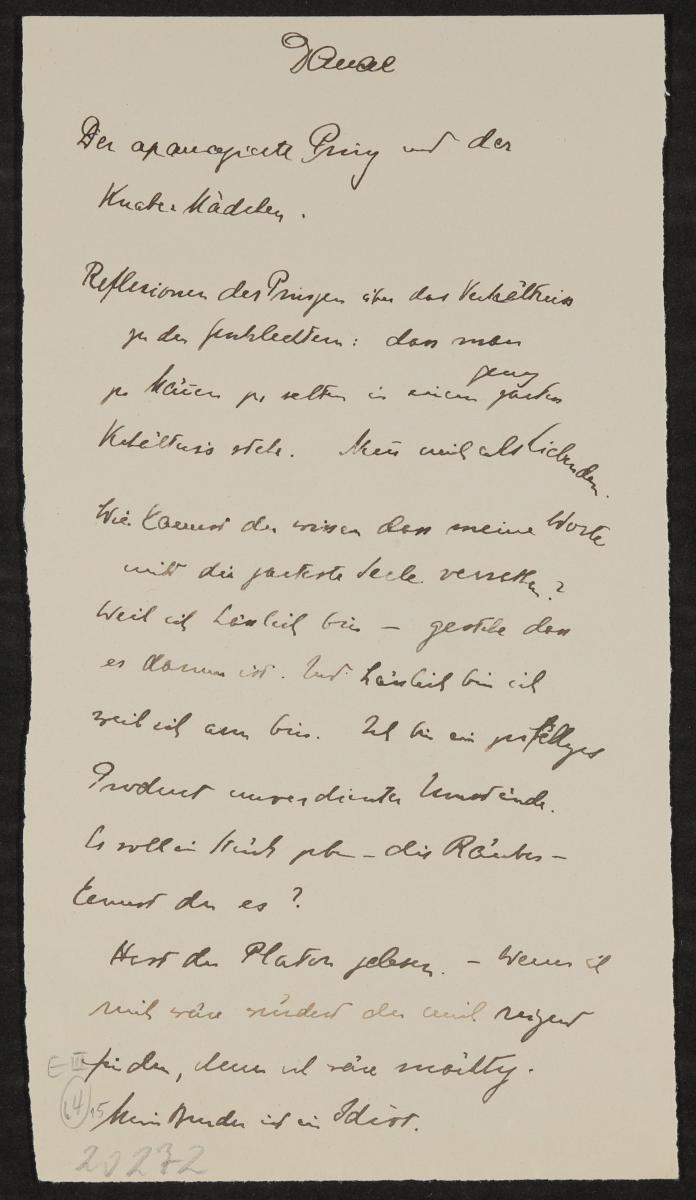 Danae
Der apanagierte Prinz und der
Knabe. Mädchen.
Reflexionen des Prinzen über das Verhältniss
zu den Geschlechtern: dass man
zu Männern zu selten in einem
ganz zarten
Verhältniss stehe. Nenn mich als Liebenden.
Wie kannst du wissen dass meine Worte
nicht die zarteste Seele verletzen?
Weil ich hässlich bin – gestehe dass
es darum ist. Und hässlich bin ich
weil ich arm bin. Ich bin ein zufälliges
Product unverdienter Umstände.
Es soll ein Stück geben – die Räuber –
kennst du es?
Hast du Platon gelesen. – Wenn ich
nicht wäre würdest du mich reizend
finden, denn ich wäre mächtig.
Mein Bruder ist ein Idiot.
E III
64 15
20272